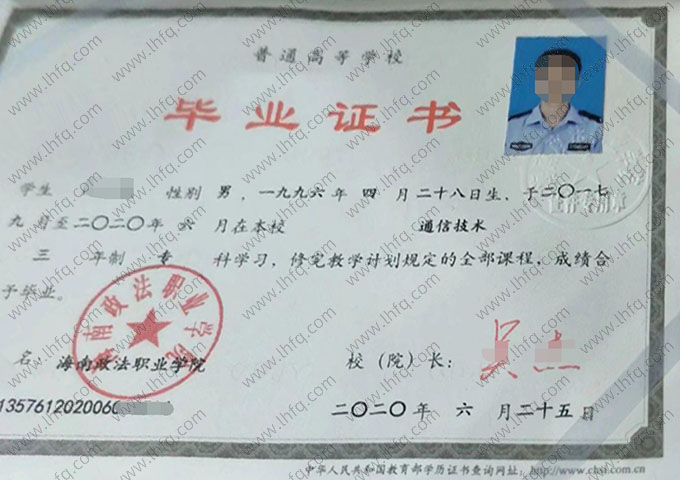 普通高等学校
毕业证书
学生 性别 男，一九九六年 四 月二十八日生，于二〇一七
九 月至二〇二〇年 六 月在本校 通信技术
三 年制 专 科学习，修完教学计划规定的全部课程，成绩合
予毕业。
海南政法职业学院
名： 海南政法职业学院 校（院）长： 吴
135761202006 二〇二〇年 六 月二十五日
中华人民共和国教育部学历证书查询网址：http://www.chsi.com.cn
www.lhfq.com